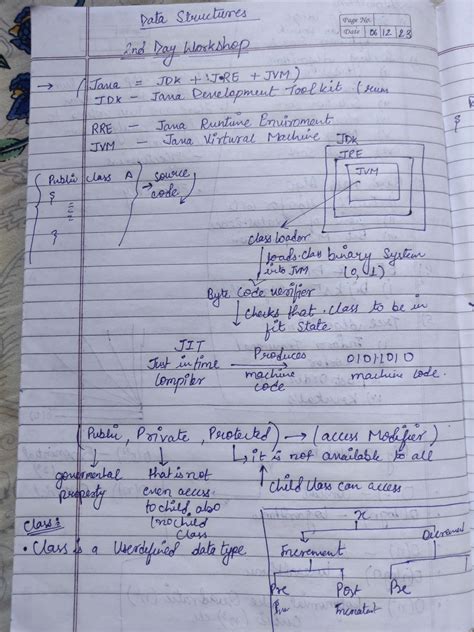 Data Structures
Page No.
Date 06 12 23
2nd Day Workshop
→ (Java = JDK + JRE + JVM)
JDK - Java Development Toolkit (
RRE - Java Runtime Enviroment
JVM - Java Virtural Machine
JDK
JRE
JVM
{ Public class A } → source
code
Class loader
loads .class binary System
into JVM (0,1)
Byte Code verifier
checks that .class to be in
fit State
JIT
Just intime Produces 01011010
compiler machine machine code.
code
(Public, Private, Protected) → (access Modifier)
it is not available to all
govermental that is not child class can access
property even access
to child also
(no child
class
Class:
• Class is a Userdefined datatype
x
Increment Decrement
Pre Post Pre